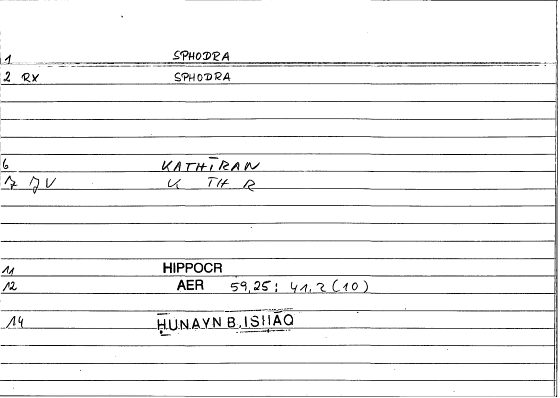 1 SPHODRA
2 RX SPHODRA
6 KATHĪRAN
7 JV K TH R
11 HIPPOCR
12 AER 59,25: 41,2 (10)
14 ḤUNAYN B. ISḤĀQ